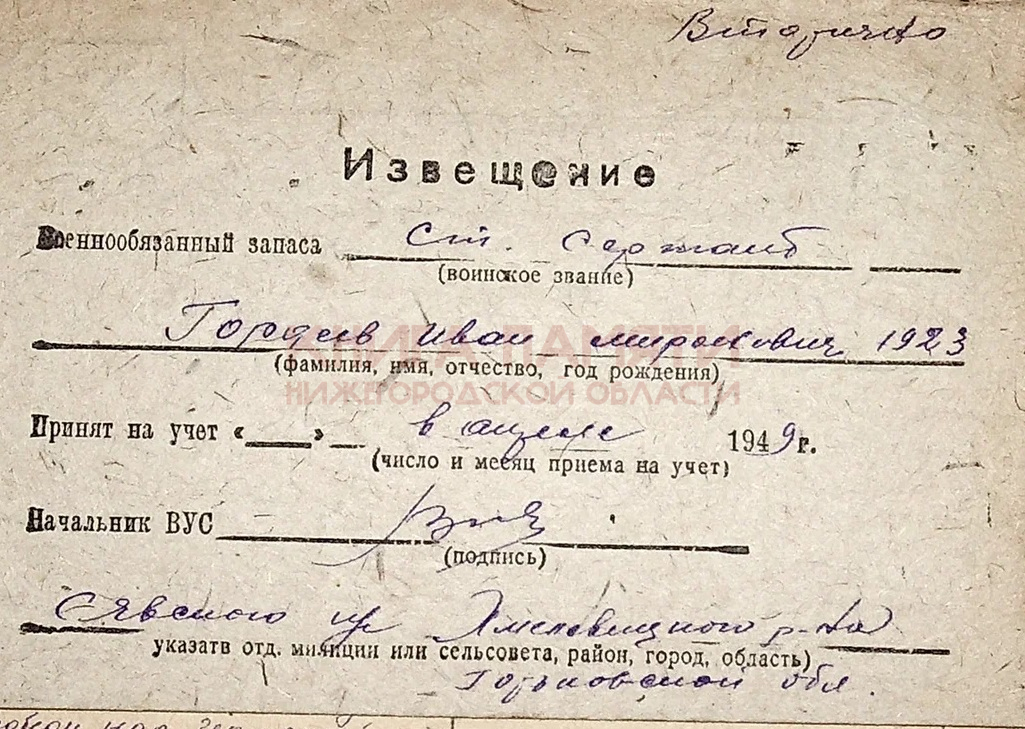 Вторично
Извещение
Военнообязанный запаса ст. Сержант
(воинское звание)
Гордеев Иван миронович 1923
КНИГА ПАМЯТИ
(фамилия, имя, отчество, год рождения)
НИЖЕГОРОДСКОЙ ОБЛАСТИ
Принят на учет «___» в апреле 1949 г.
(число и месяц приема на учет)
Начальник ВУС
(подпись)
Сявского Хмелевицкого р-на
указать отд. милиции или сельсовета, район, город, область)
Горьковской обл.